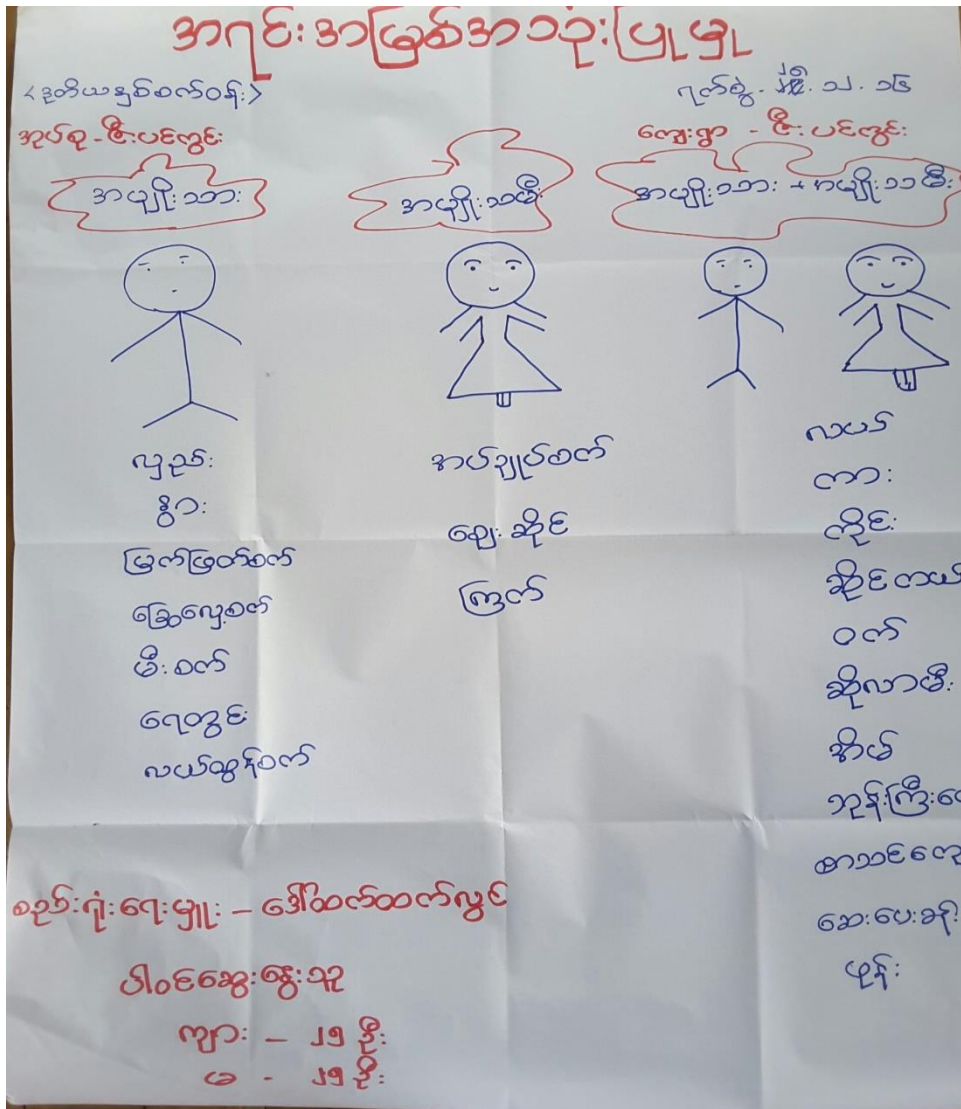 အရင်းအမြစ်အသုံးပြုမှု
<ဒုတိယနှစ်စက်ဝန်း>
ရက်စွဲ . . ၁၂ . ၁၆
အုပ်စု - ဇီးပင်ကွင်း
ကျေးရွာ - ဇီးပင်ကွင်း
အမျိုးသား
အမျိုးသမီး
အမျိုးသား + အမျိုးသမီး
လှည်း
နွား
မြက်ဖြတ်စက်
ခြွေလှေ့စက်
မီးစက်
ရေတွင်း
လယ်ထွန်စက်
အပ်ချုပ်စက်
ဈေးဆိုင်
ကြက်
လယ်
ကား
လှိုင်း
ဆိုင်ကယ်
ဝက်
ဆိုလာမီး
အိမ်
ဘုန်းကြီး
စာသင်
ဆေးပေးခန်း
ဖုန်း
စည်းရုံးရေးမှူး - ဒေါ်ထက်ထက်လွင်
ပါဝင်ဆွေးနွေးသူ
ကျား - ၂၅ ဦး
မ - ၂၅ ဦး